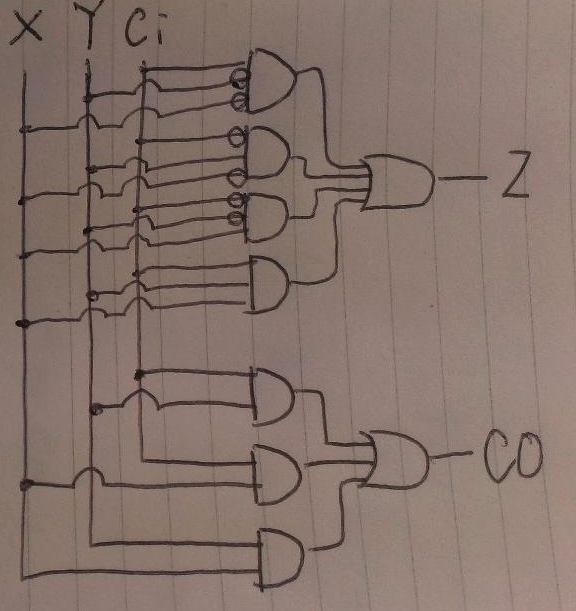 X Y Ci
Z
CO